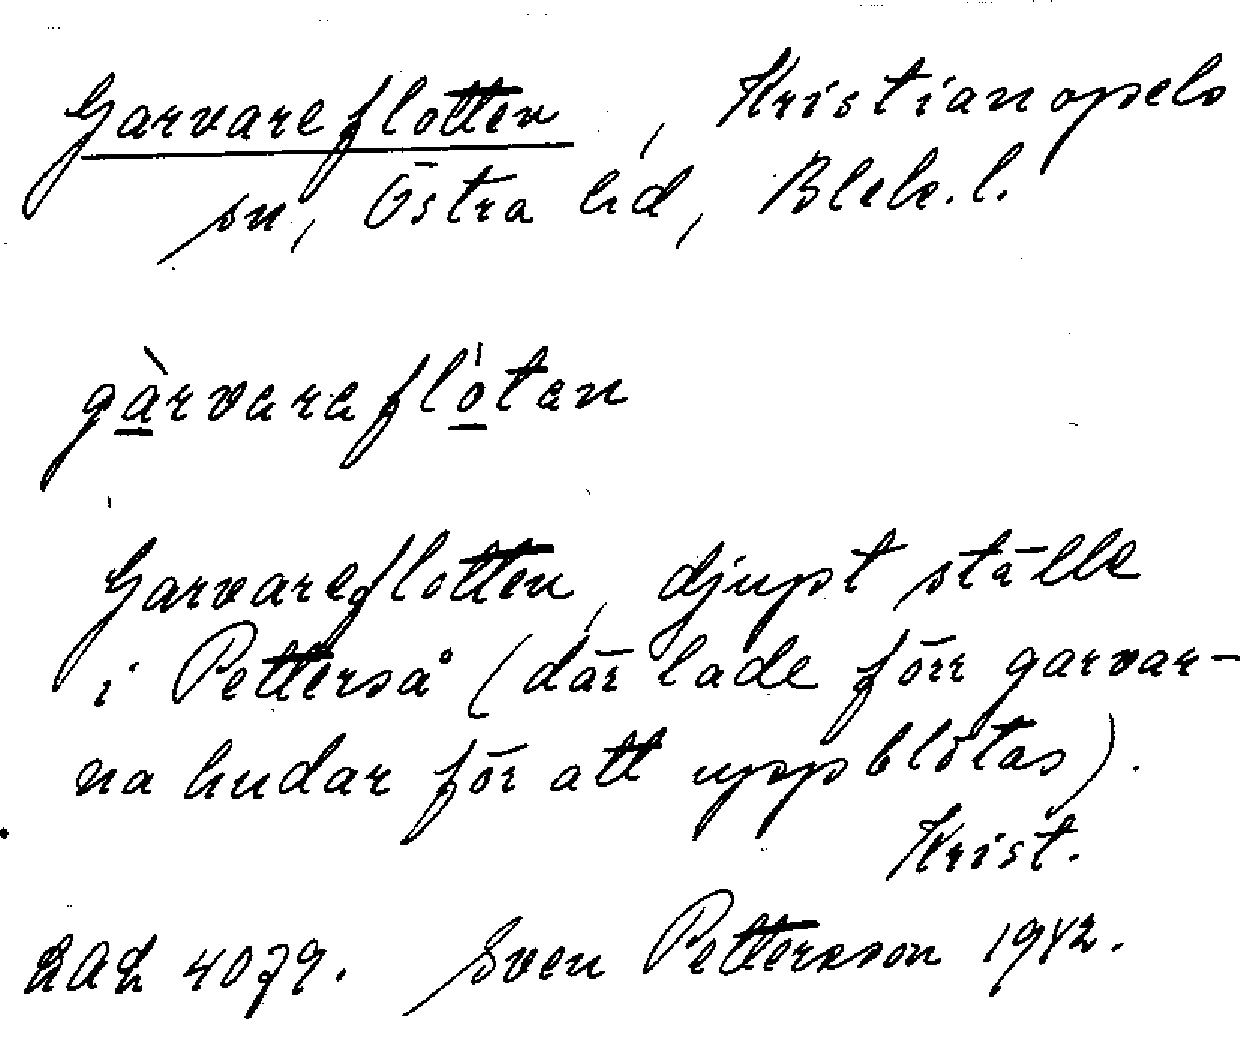 Garvareflotten, Kristianopels
sn, Östra hd, Blek. l.
gàrvarafló̱tan
Garvareflotten, djupt ställe
i Petterså (där lade förr garvar-
na hudar för att uppblötas).
Krist.
LAL 4079. Sven Pettersson 1942.